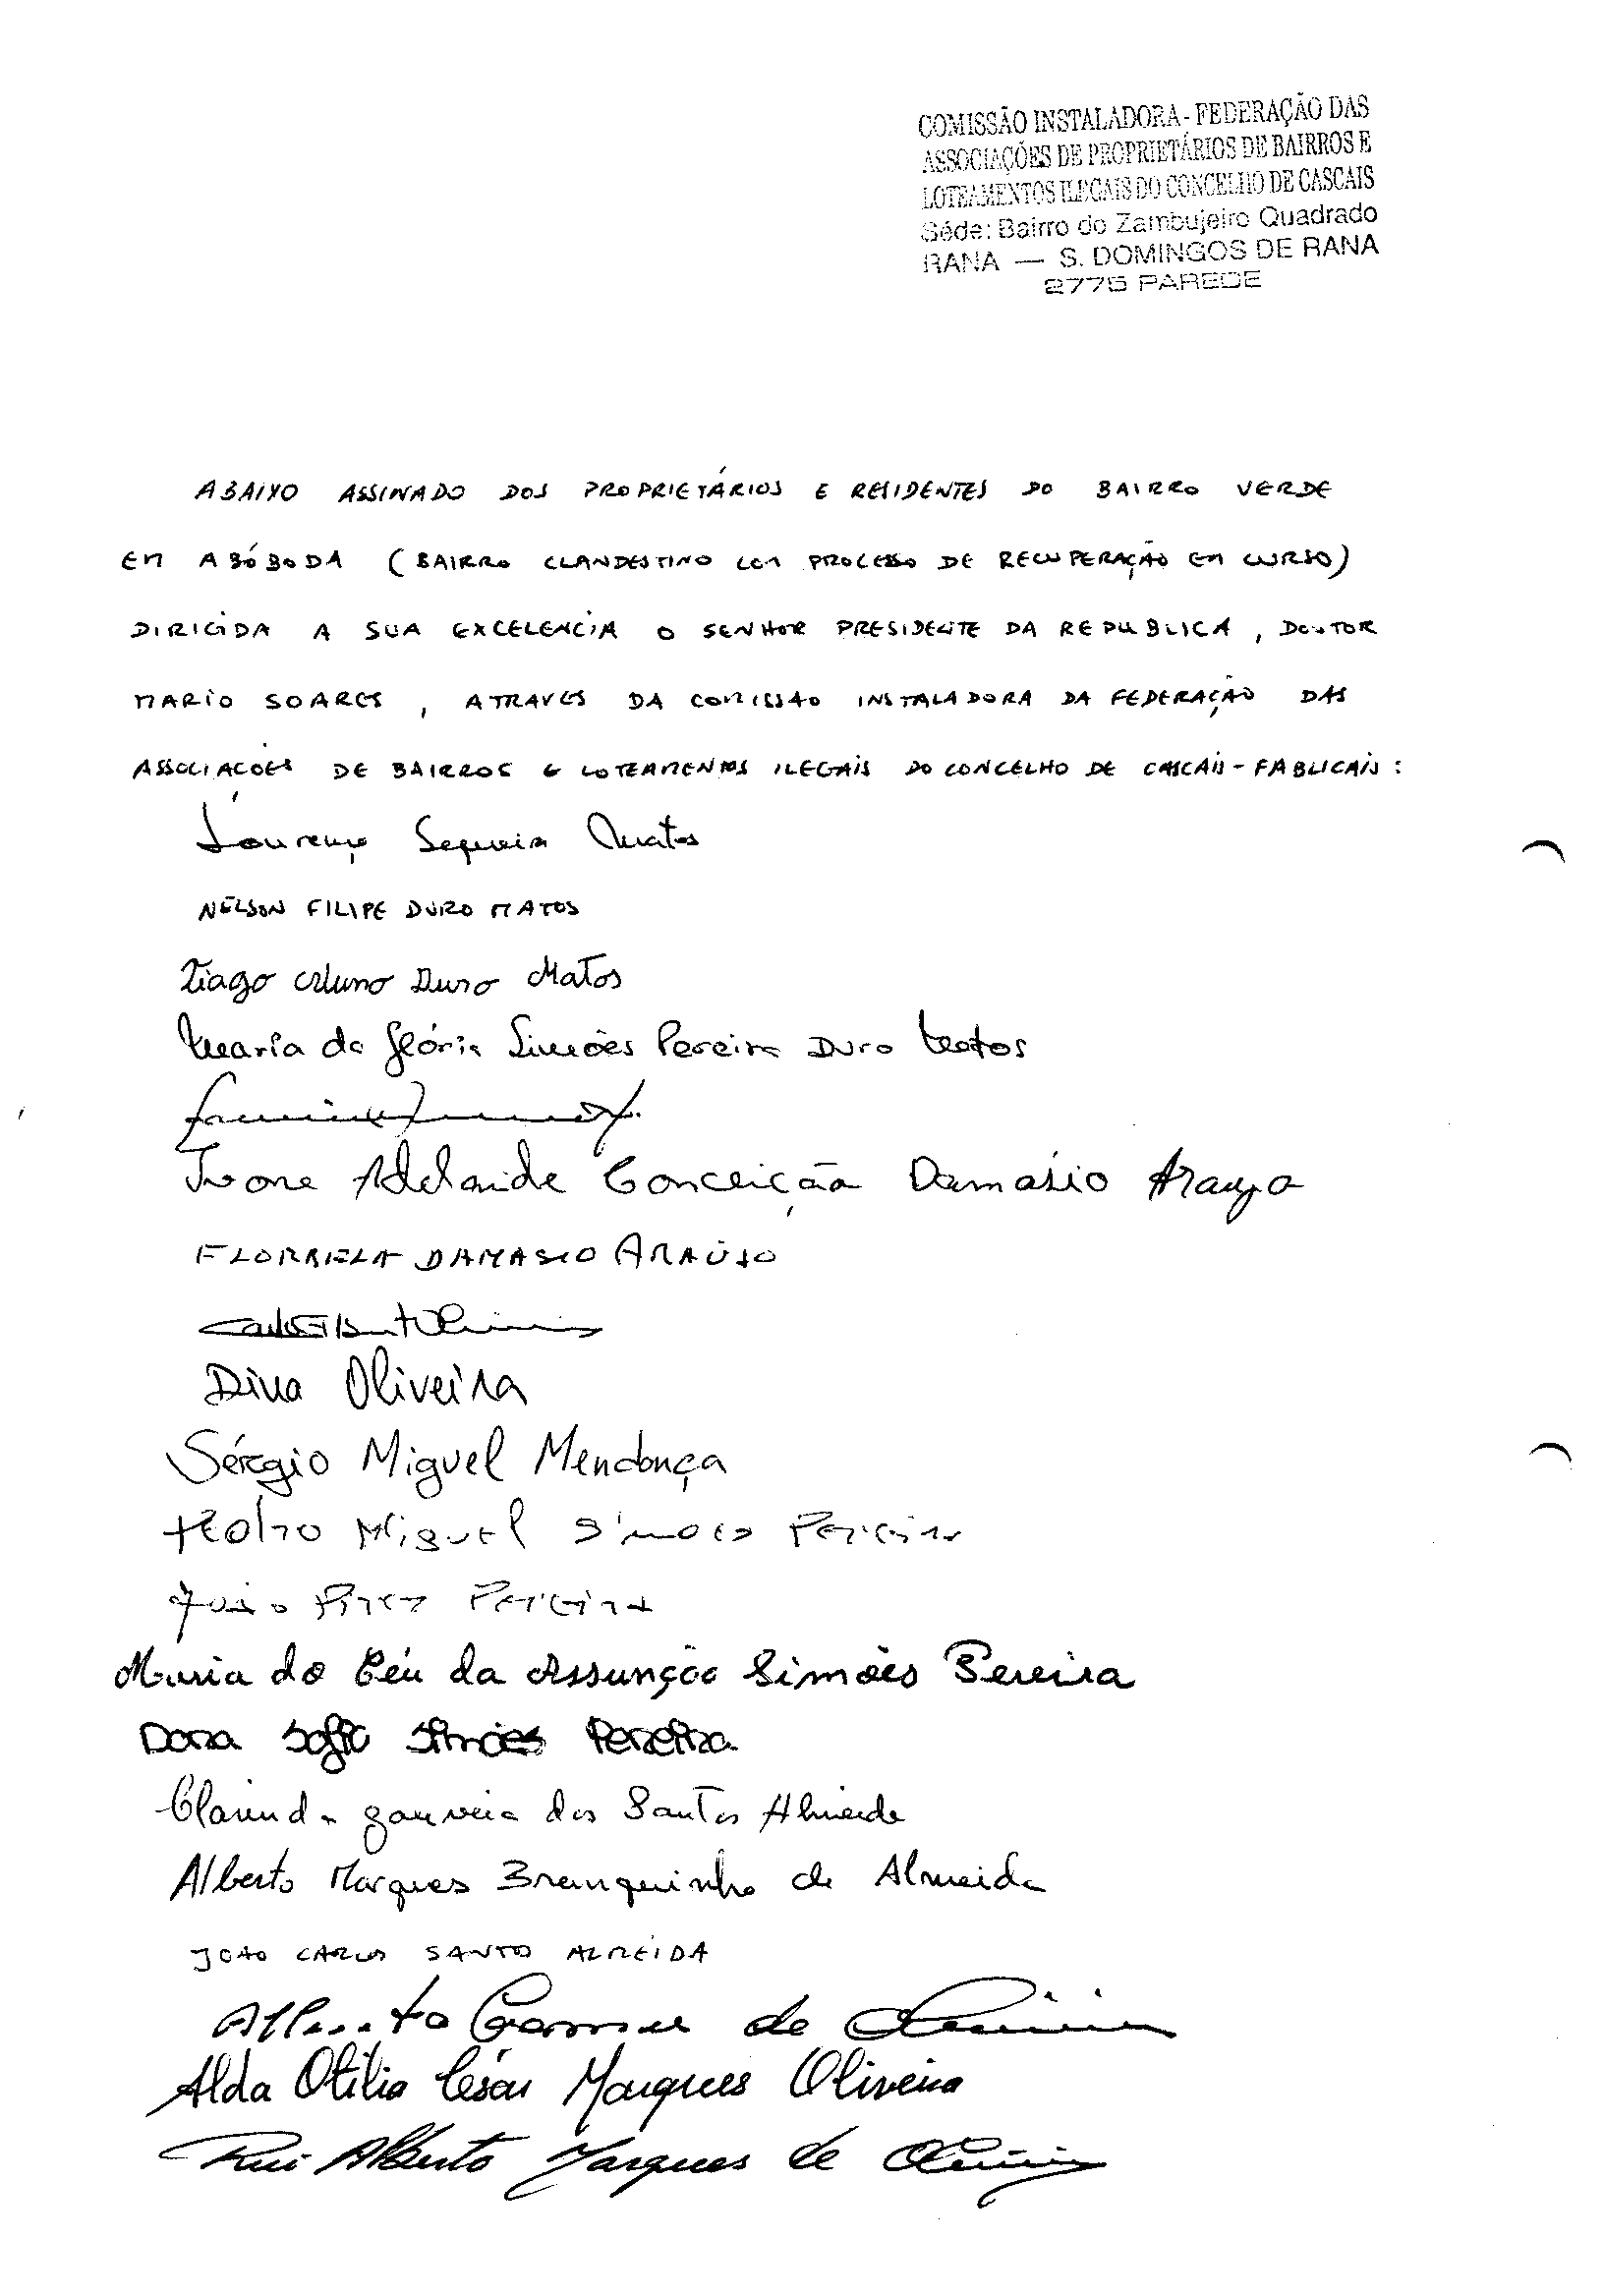 COMISSÃO INSTALADORA - FEDERAÇÃO DAS
ASSOCIAÇÕES DE PROPRIETÁRIOS DE BAIRROS E
LOTEAMENTOS ILEGAIS DO CONCELHO DE CASCAIS
Séde: Bairro do Zambujeiro Quadrado
RANA — S. DOMINGOS DE RANA
2775 PAREDE
ABAIXO ASSINADO DOS PROPRIETÁRIOS E RESIDENTES DO BAIRRO VERDE
EM ABÓBODA (BAIRRO CLANDESTINO COM PROCESSO DE RECUPERAÇÃO EM CURSO)
DIRIGIDA A SUA EXCELENCIA O SENHOR PRESIDENTE DA REPUBLICA, DOUTOR
MARIO SOARES, ATRAVES DA COMISSAO INSTALADORA DA FEDERAÇÃO DAS
ASSOCIAÇÕES DE BAIRROS E LOTEAMENTOS ILEGAIS DO CONCELHO DE CASCAIS - FABLICAIS:
Lourenço Sequeira Matos
NELSON FILIPE DURO MATOS
Tiago Nuno Duro Matos
Maria da Glória Simões Pereira Duro Matos
Ivone Adelaide Conceição Damásio Araujo
FLORBIELA DAMASIO ARAÚJO
Oliveira
Dina Oliveira
Sérgio Miguel Mendonça
Pedro Miguel Simoes Pereira
João Pires Pereira
Maria do Céu da Assunção Simões Pereira
Dora Sofia Simões Pereira
Clarinda Gouveia dos Santos Almeida
Alberto Marques Branquinho de Almeida
JOAO CARLOS SANTO ALMEIDA
Alberto de Oliveira
Alda Otília César Marques Oliveira
Rui Alberto Marques de Oliveira